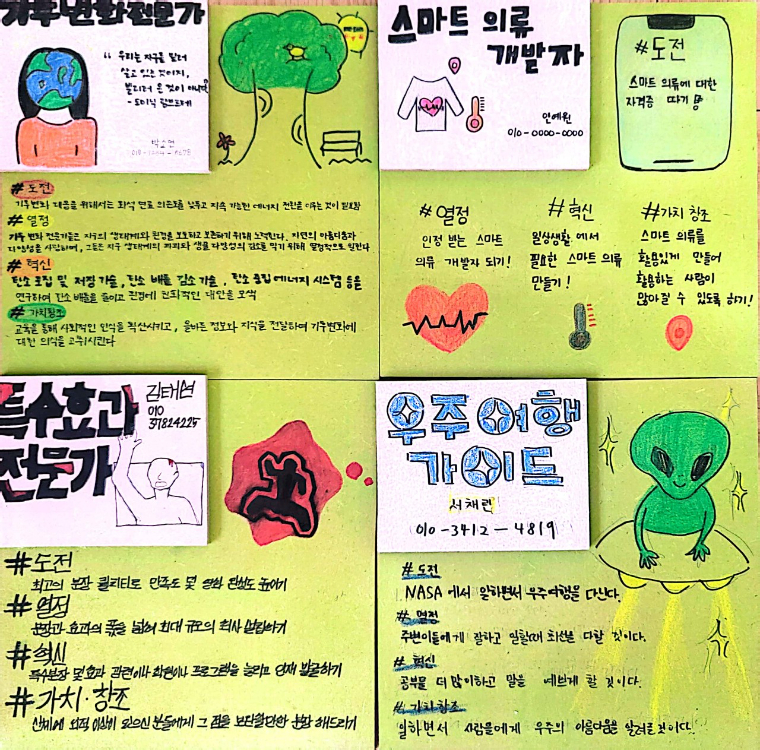 기후변화전문가
“ 우리는 지구를 빌려
살고 있는 것이지,
물려받은 것이 아니다”
박소연
# 도전
기후변화 대응을 위해서는 화석 연료 의존도를 낮추고 지속 가능한 에너지 전환을 이루는 것이 필요함
# 열정
기후 변화 전문가들은 지구의 생태계와 환경을 보호하고 보존하기 위해 노력한다. 자연의 아름다움과
다양성을 사랑하며, 그들은 지구 생태계의 파괴와 생물 다양성의 감소를 막기 위해 열정적으로 일한다
# 혁신
탄소 포집 및 저장 기술, 탄소 배출 감소 기술, 탄소 중립 에너지 시스템 등을
연구하여 탄소 배출을 줄이고 환경에 친화적인 대안을 모색
# 가치창조
교육을 통해 사회적인 인식을 확산시키고, 올바른 정보와 지식을 전달하여 기후변화에
대한 의식을 고취시킨다
스마트 의류
개발자
안예원
010-0000-0000
#도전
스마트 의류에 대한
자격증 따기
#열정
인정 받는 스마트
의류 개발자 되기!
#혁신
일상생활에서
필요한 스마트 의류
만들기!
#가치 창조
스마트 의류를
활용있게 만들어
활용하는 사람이
많아질 수 있도록 하기!
특수효과
전문가
김태선
010
37824225
#도전
최고의 분장 퀄리티로 만족도 및 영화 완성도 높이기
#열정
분장과 효과의 폭을 넓혀 최대 규모의 회사 설립하기
#혁신
특수분장 및 효과 관련이나 학원이나 프로그램을 늘리고 인재 발굴하기
#가치·창조
신체에 외적 이상이 있으신 분들에게 그 점을 보완할만한 분장 해드리기
우주여행
가이드
서채린
010-3412-4819
# 도전
NASA에서 일하면서 우주여행을 다닌다.
# 열정
주변이들에게 잘하고 일할때 최선을 다할 것이다.
# 혁신
공부를 더 많이하고 말을 예쁘게 할 것이다.
# 가치창조
일하면서 사람들에게 우주의 아름다움을 알려줄것이다.